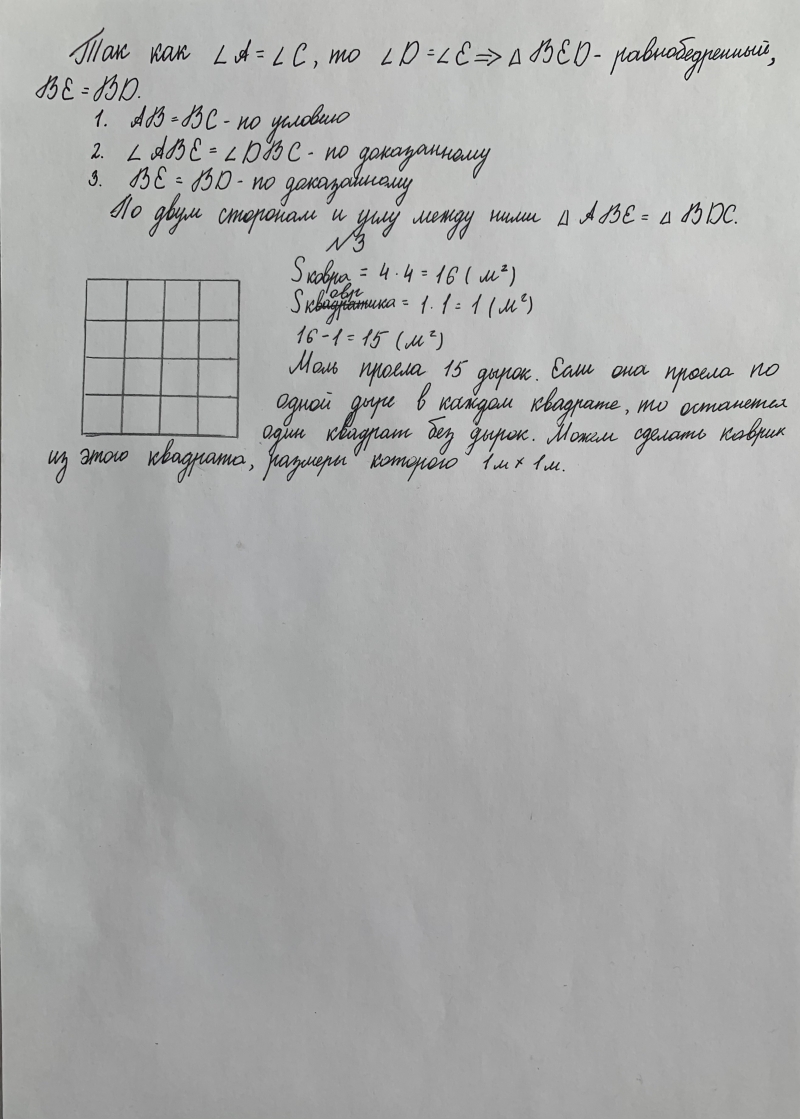 Так как ∠A = ∠C, то ∠D = ∠E ⇒ △ BED - равнобедренный,
BE = BD.
1. AB = BC - по условию
2. ∠ ABE = ∠ DBC - по доказанному
3. BE = BD - по доказанному
По двум сторонам и углу между ними △ ABE = △ BDC.
N3
Sковра = 4 · 4 = 16 ( м²)
Sковрика = 1 · 1 = 1 ( м²)
16 - 1 = 15 (м²)
Моль проела 15 дырок. Если она проела по
одной дыре в каждом квадрате, то останется
один квадрат без дырок. Можем сделать коврик
из этого квадрата, размеры которого 1м × 1м.